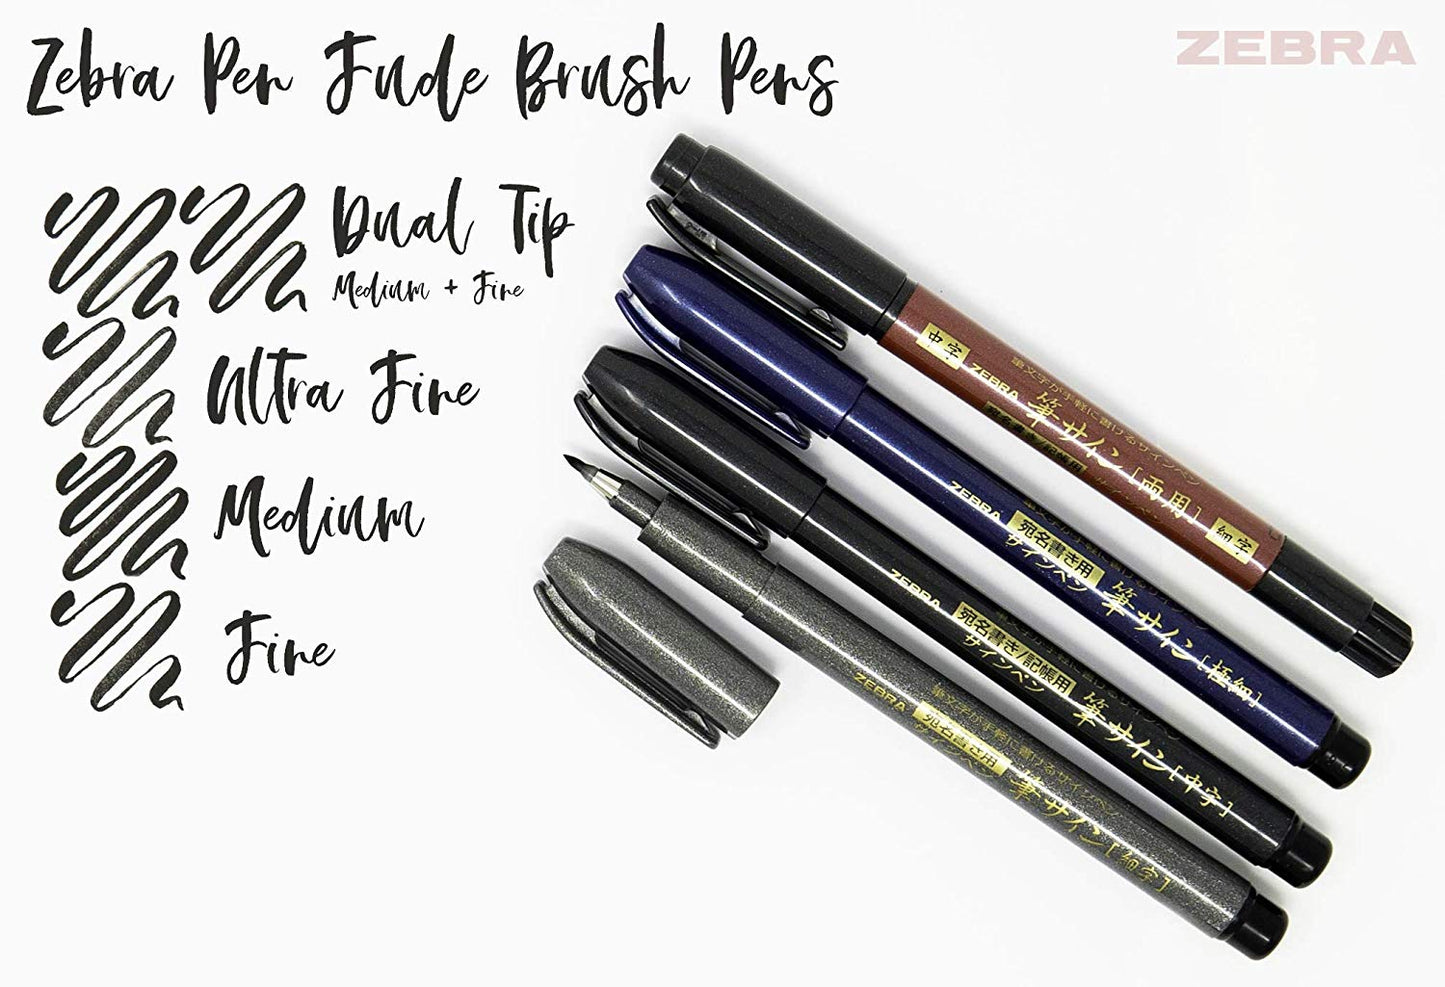 Zebra Pen Fude Brush Pens
ZEBRA
Dual Tip
Medium + Fine
Ultra Fine
Medium
Fine
中字
ZEBRA
筆文字が手軽に書けるサインペン
筆サイン[両用]
細字
ZEBRA
宛名書き用
サインペン
筆サイン[極細]
ZEBRA
宛名書き/記帳用
サインペン
筆サイン[中字]
ZEBRA
筆文字が手軽に書けるサインペン
宛名書き用
サインペン
筆サイン[細字]